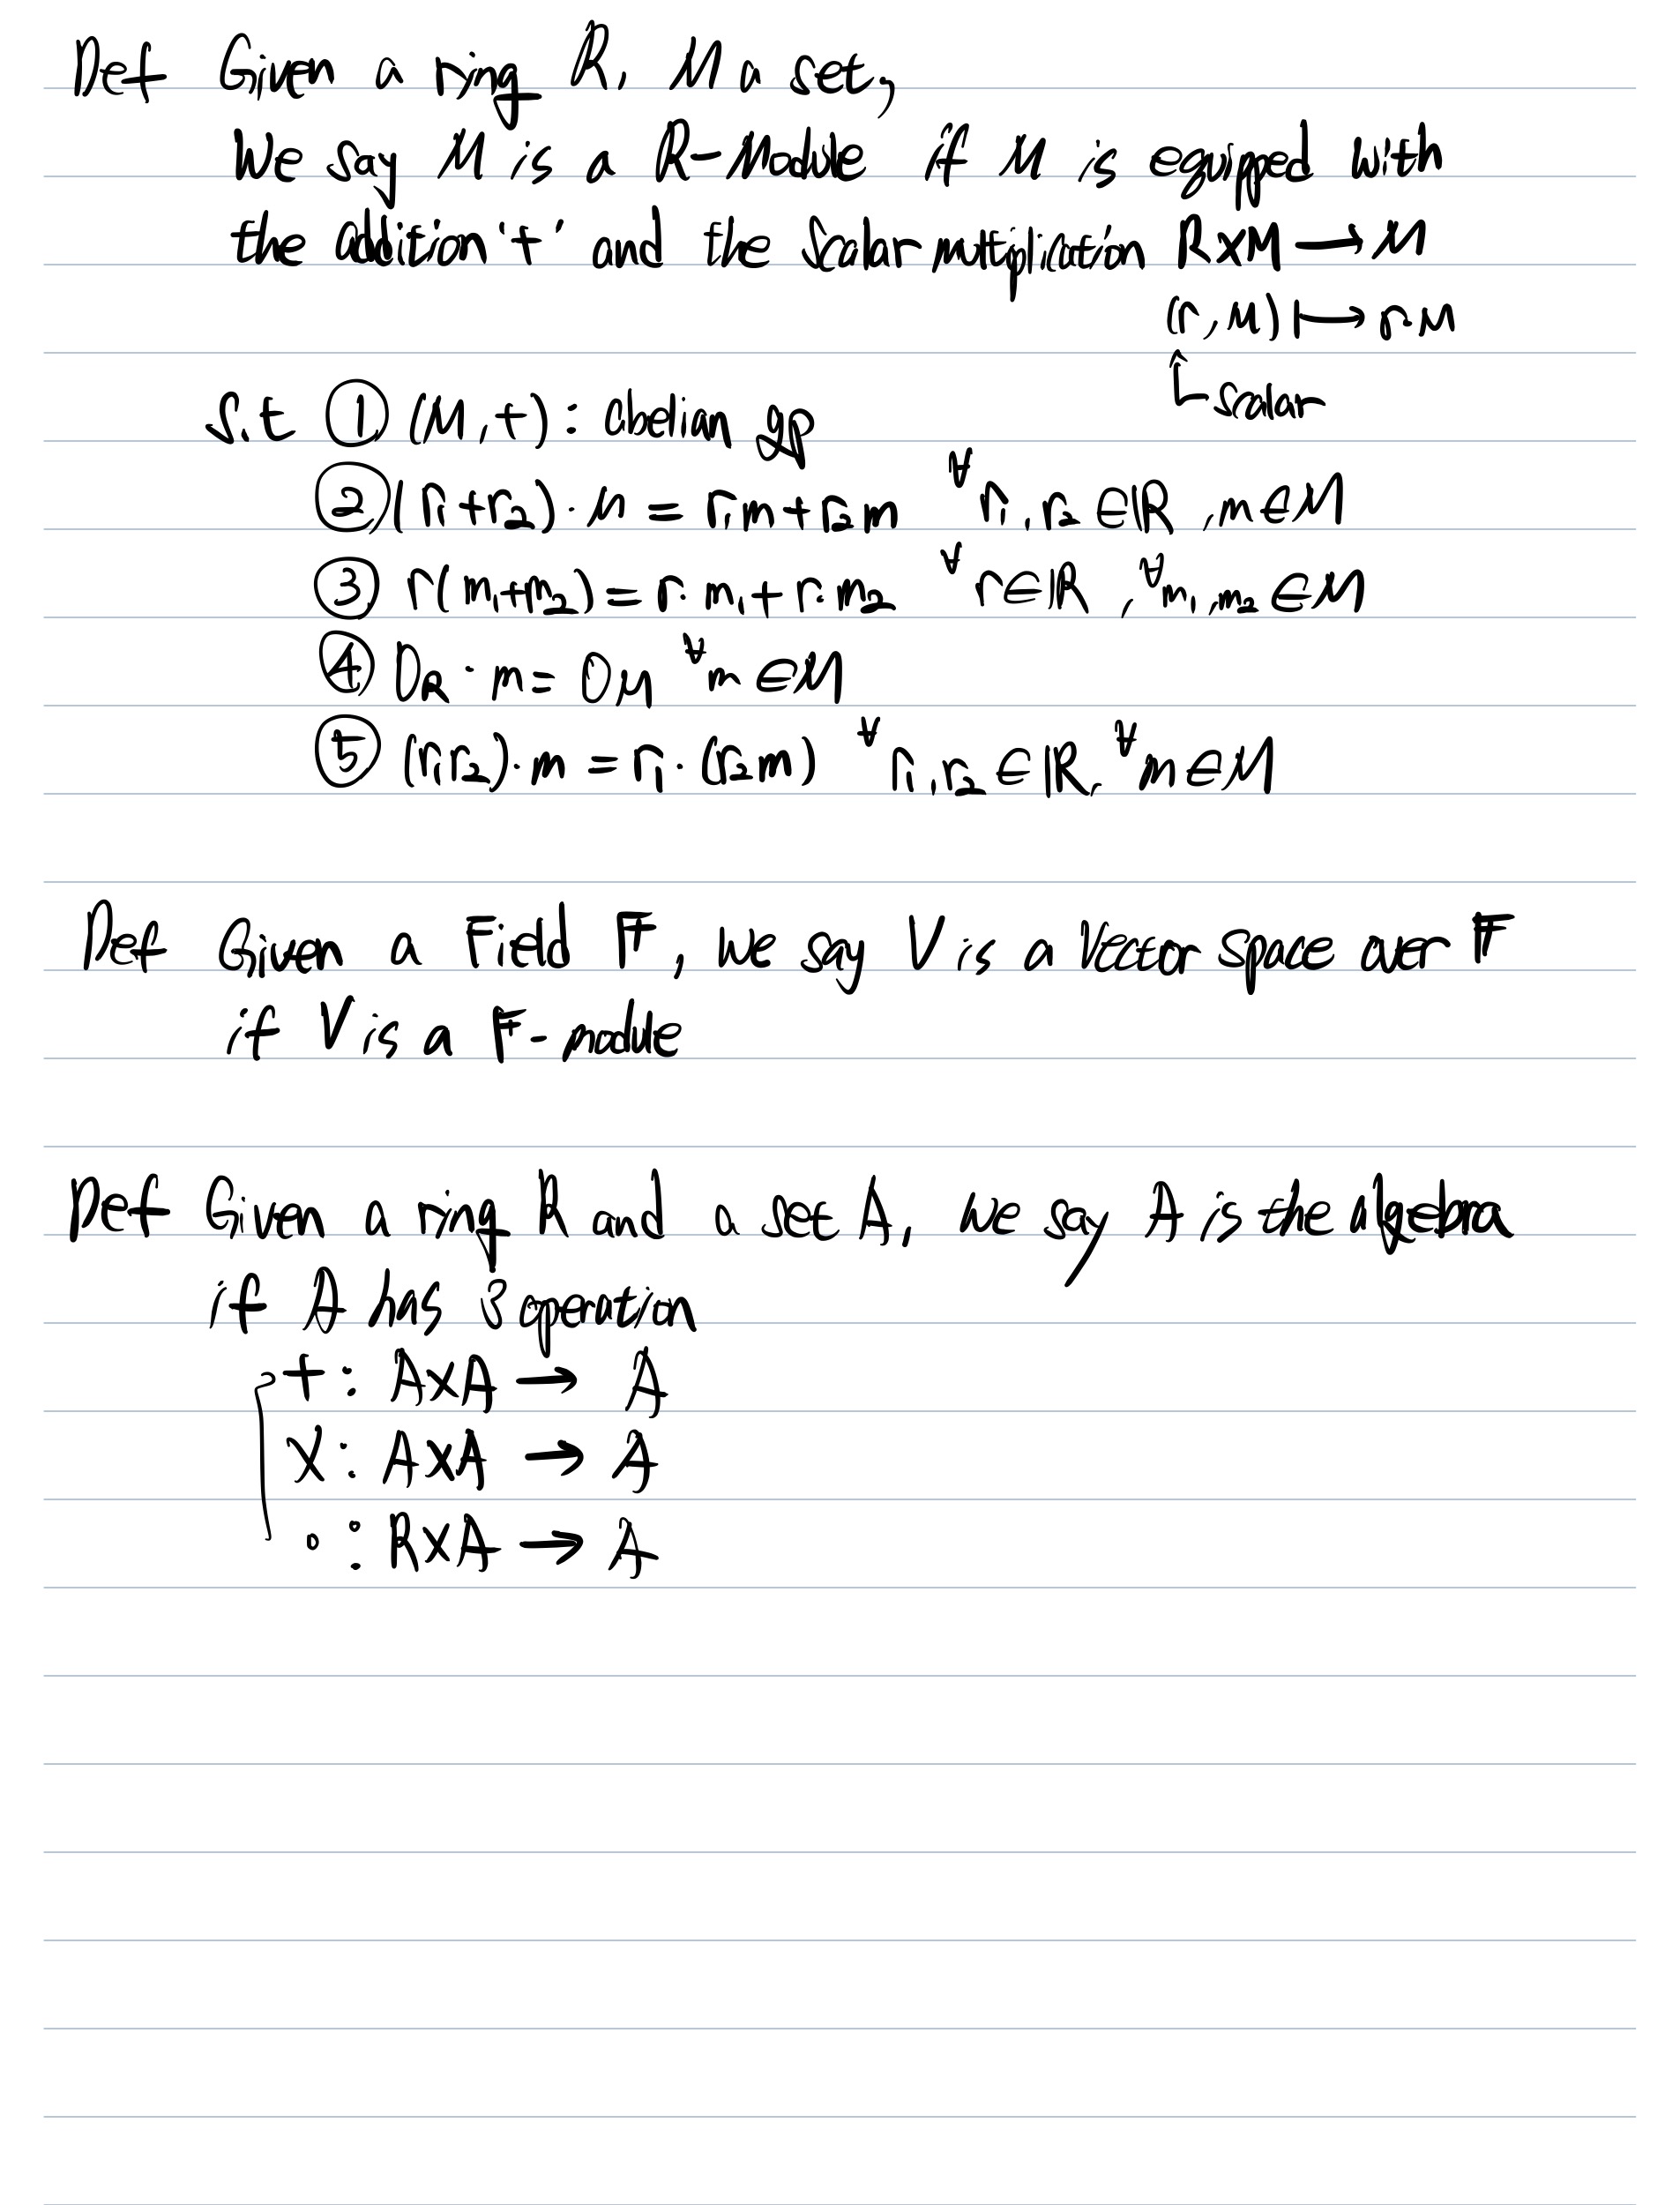 Def Given a ring R, M a set,
We say M is a R-Module if M is equipped with
the addition '+' and the scalar multiplication R×M → M
(r,M) ↦ r·m
↳ scalar
S.t ① (M,+): abelian gp
② (r₁+r₂)·m = r₁m+r₂m ∀r₁,r₂∈R, m∈M
③ r(m₁+m₂) = r·m₁+r·m₂ ∀r∈R, ∀m₁,m₂∈M
④ 0_R·m = 0_M ∀m∈M
⑤ (r₁r₂)·m = r₁·(r₂m) ∀r₁,r₂∈R, ∀m∈M
Def Given a Field F, we say V is a Vector space over F
if V is a F-module
Def Given a ring R and a set A, we say A is the algebra
if A has 3 operation
+: A×A → A
×: A×A → A
∘: R×A → A